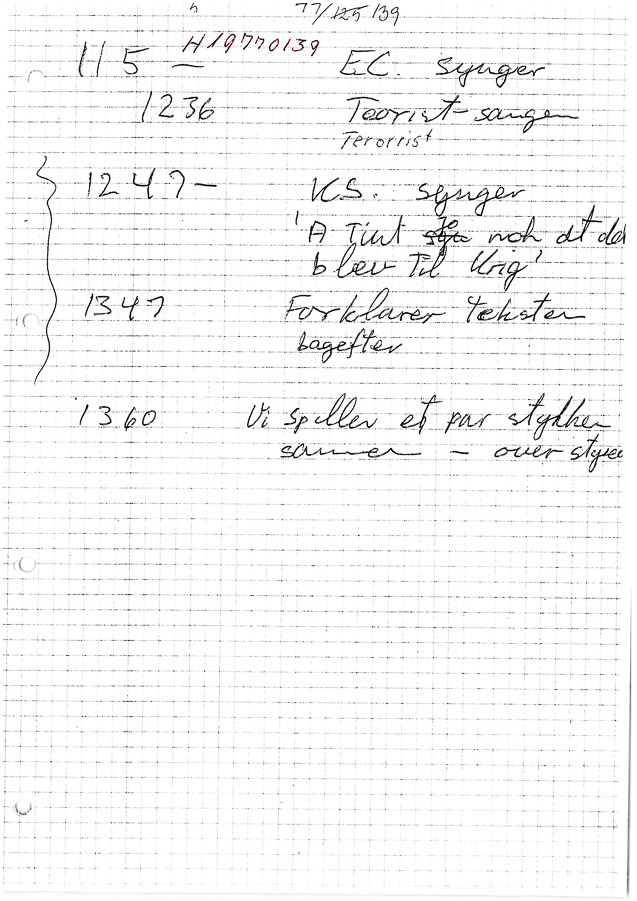 77/125/139
H19770139
115 — E.C. synger
1236 Teorist-sangen
Terorrist
1247 — K.S. synger
'A Tint jo noh dt
blev Til Krig'
1347 Forklarer teksten
bagefter
1360 Vi spiller et par stykker
sammen — over